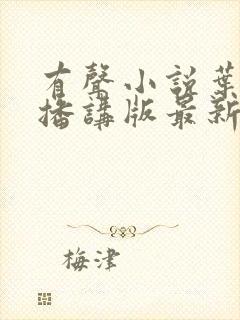 有聲小說葉
播講版最新
梅津